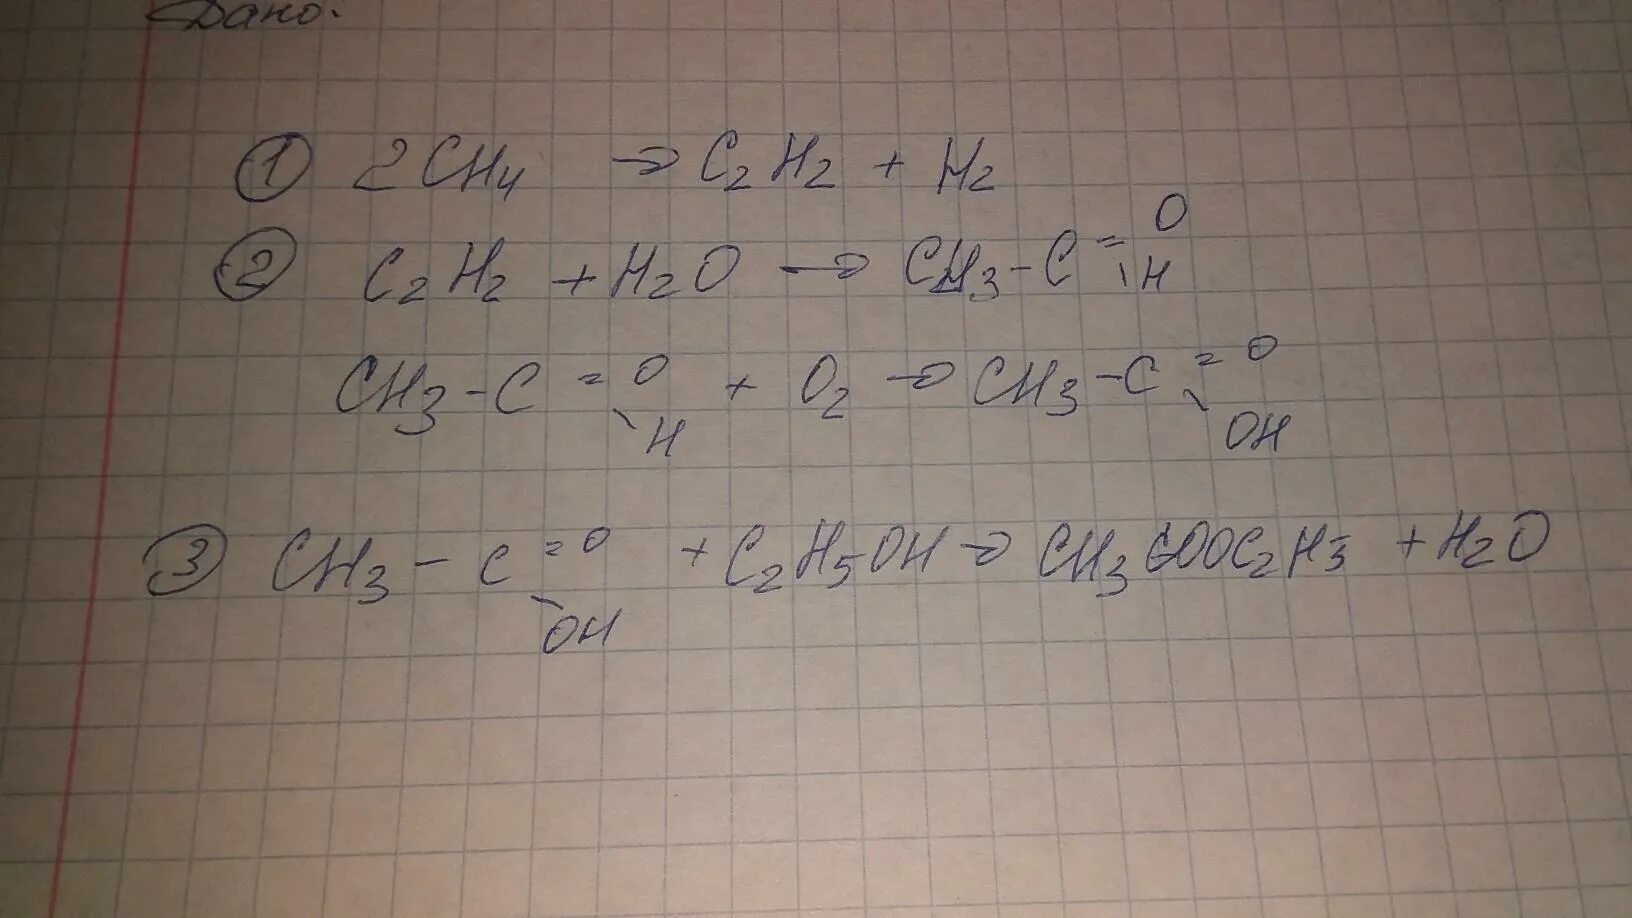 Дано:
① 2CH4 → C2H2 + H2
② C2H2 + H2O → CH3-C=O\H
CH3-C=O\H + O2 → CH3-C=O\OH
③ CH3-C=O\OH + C2H5OH → CH3COOC2H5 + H2O